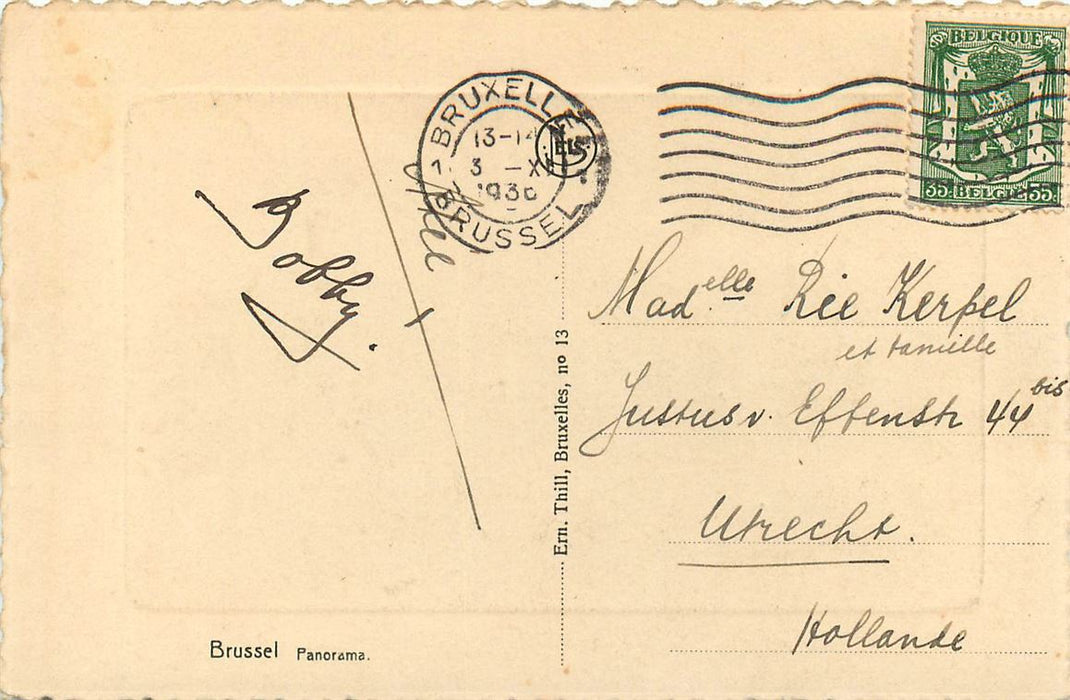 BELGIQUE
35 BELGIE 35
BRUXELLES
13-14
3 -XI
1936
BRUSSEL
ELS
Bobby.
Mad.elle Rie Kerpel
et famille
Justus v. Effenstr 44 bis
Utrecht.
Hollande
Ern. Thill, Bruxelles, no 13
Brussel Panorama.